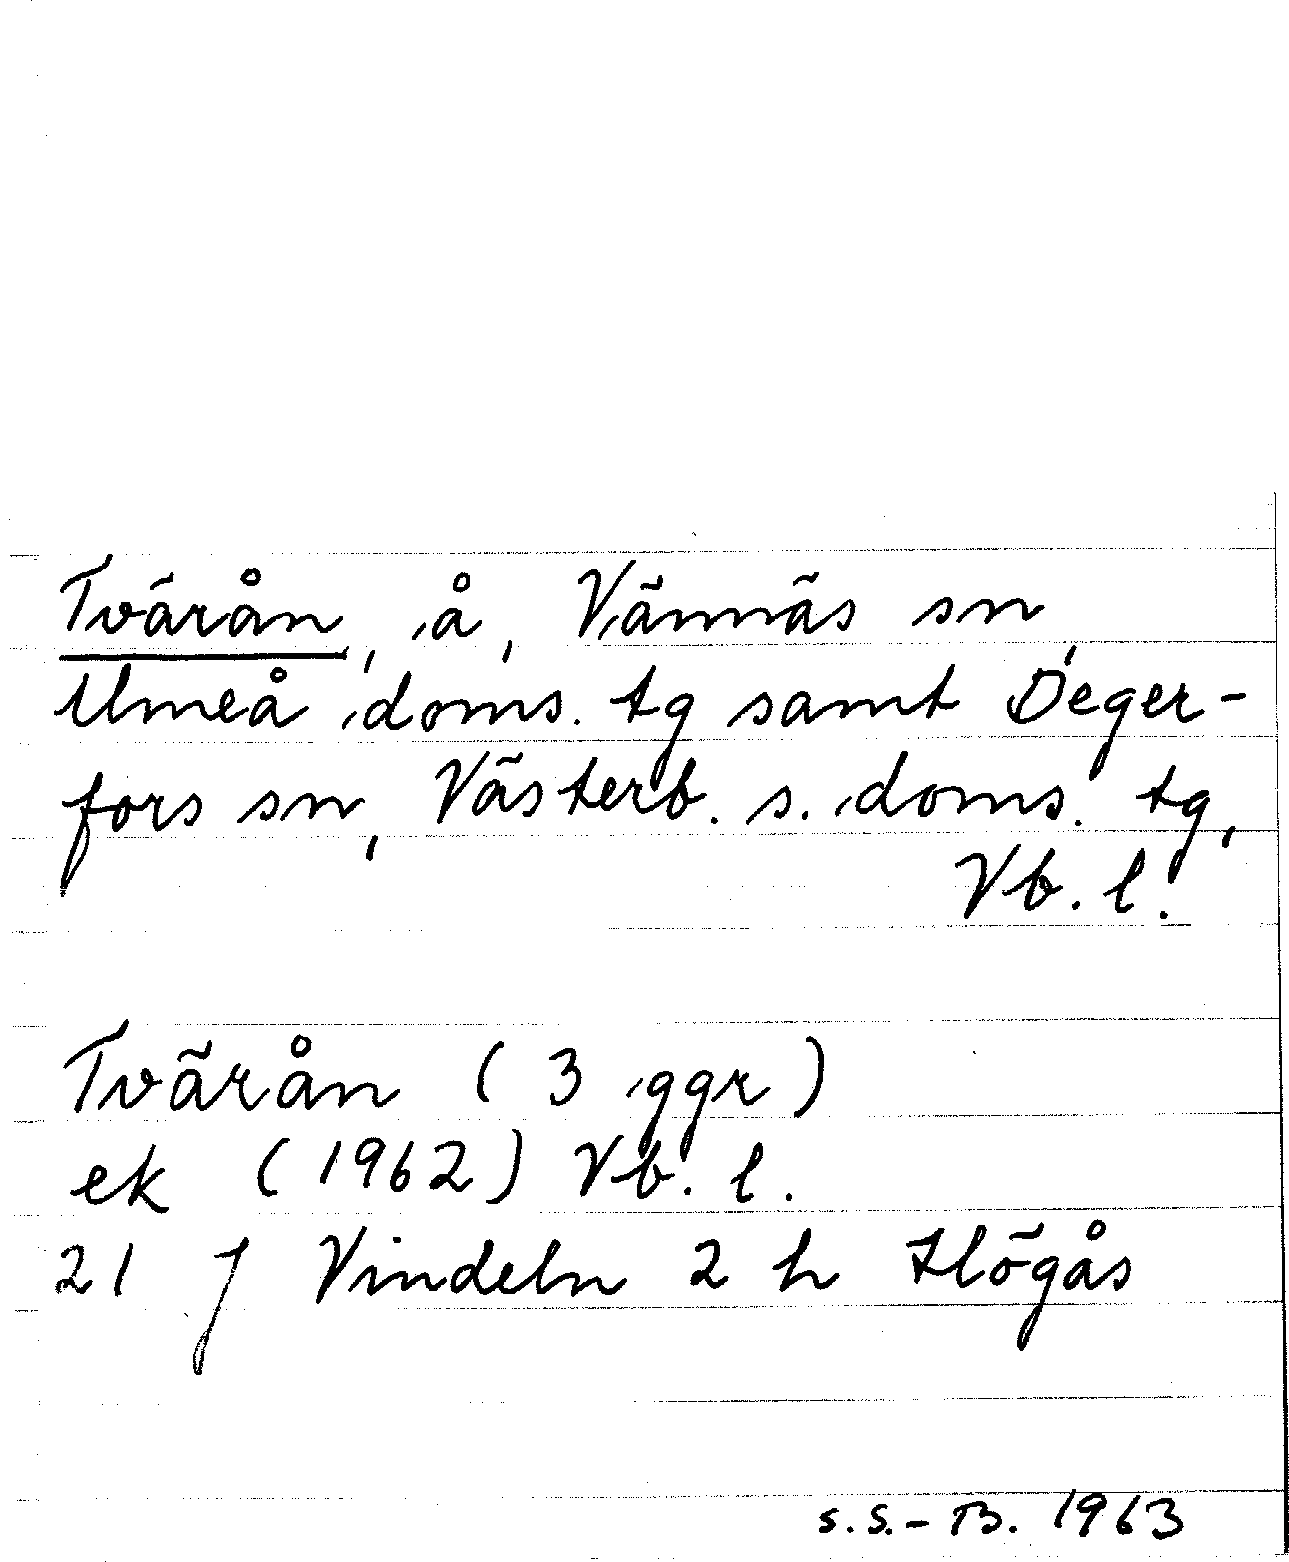 Tvärån, å, Vännäs sn,
Umeå doms. tg samt Deger-
fors sn, Västerb. s. doms. tg,
Vb. l.
Tvärån (3 ggr)
ek (1962) Vb. l.
21 J Vindeln 2 h Högås
S.S.-B. 1963